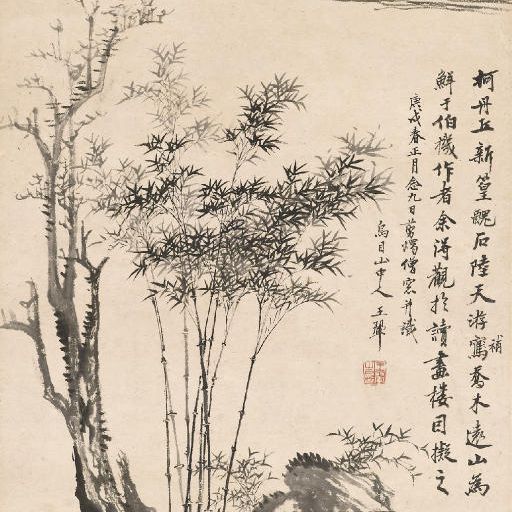 柯丹丘新篁醜石陸天游寫喬木遠山為
補
鮮于伯機作者余得觀於讀畫樓因擬之
庚戌春正月念九日剪燭僧窓并識
烏目山中人王翬